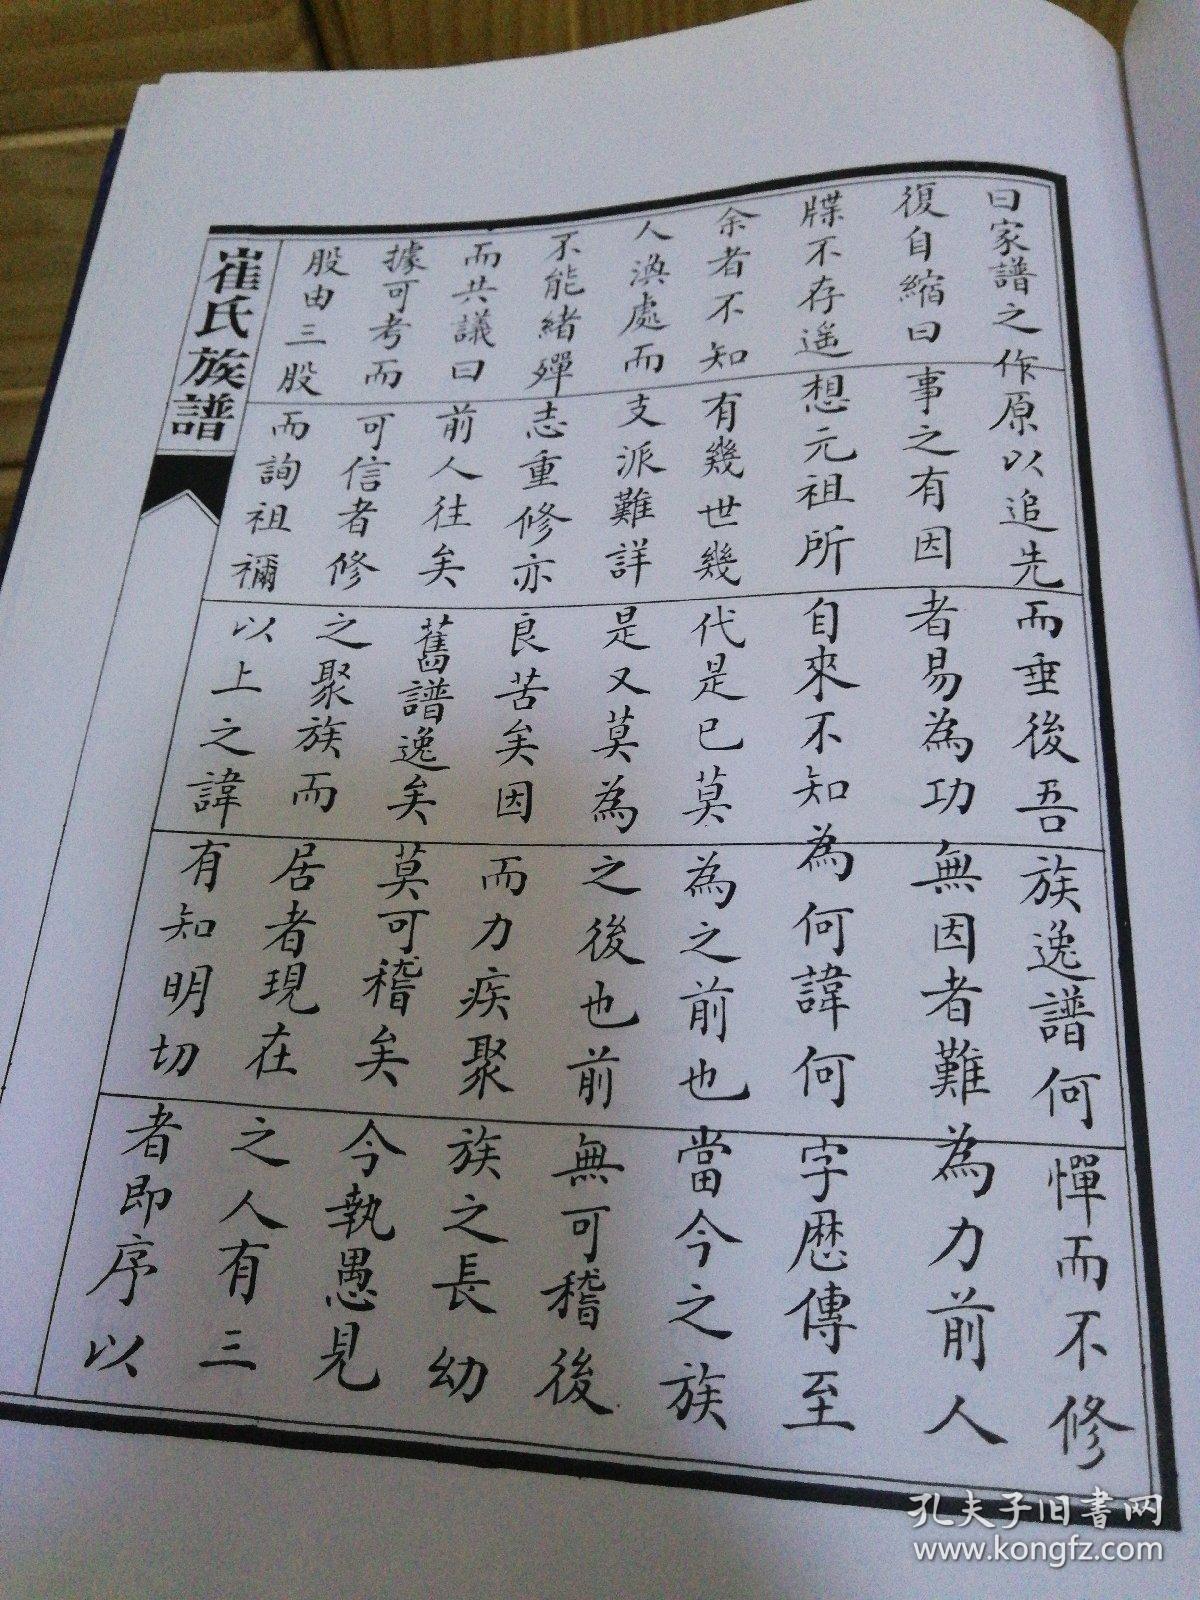 曰家譜之作原以追先而垂後吾族逸譜何憚而不修
復自縮曰事之有因者易為功無因者難為力前人
牒不存遥想元祖所自來不知為何諱何字歷傳至
余者不知有幾世幾代是已莫為之前也當今之族
人渙處而支派難詳是又莫為之後也前無可稽後
不能緒殫志重修亦良苦矣因而力疾聚族之長幼
而共議曰前人往矣舊譜逸矣莫可稽矣今執愚見
據可考而可信者修之聚族而居者現在之人有三
股由三股而詢祖禰以上之諱有知明切者即序以
崔氏族譜
孔夫子旧书网
www.kongfz.com